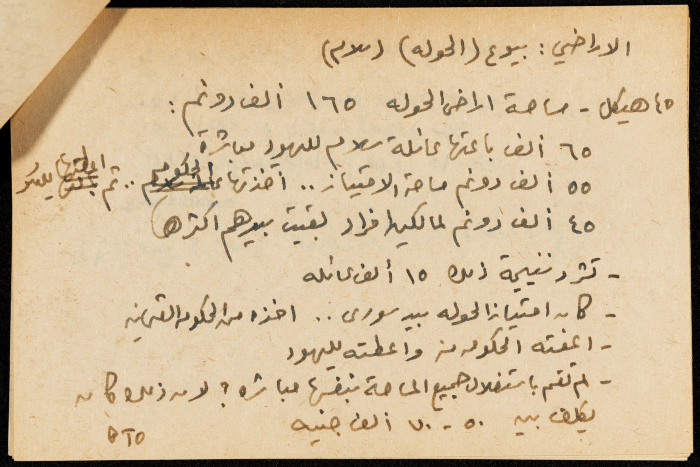 الاراضي : بيوع (الحوله) (سلام)
٤٥ هيكل - مساحة اراضي الحوله ١٦٥ ألف دونم :
٦٥ ألف باعتها عائلة سلام لليهود مباشرة
٥٥ ألف دونم مساحة الامتياز .. أخذتها الحكومه .. ثم اعطتها لليهود
٤٥ ألف دونم لمالكين افراد بقيت بيدهم اكثرها
- تشرد نتيجة ذلك ١٥ ألف عائله
- كان امتياز الحوله بيد سوري .. اخذه من الحكومه العثمانيه
- اعفته الحكومه منه واعطته لليهود
- لم تقم باستغلال جميع المساحة بنفسها مباشره ? لان ذلك كان
يكلف بين ٥٠ - ٧٠ ألف جنيه
PTO